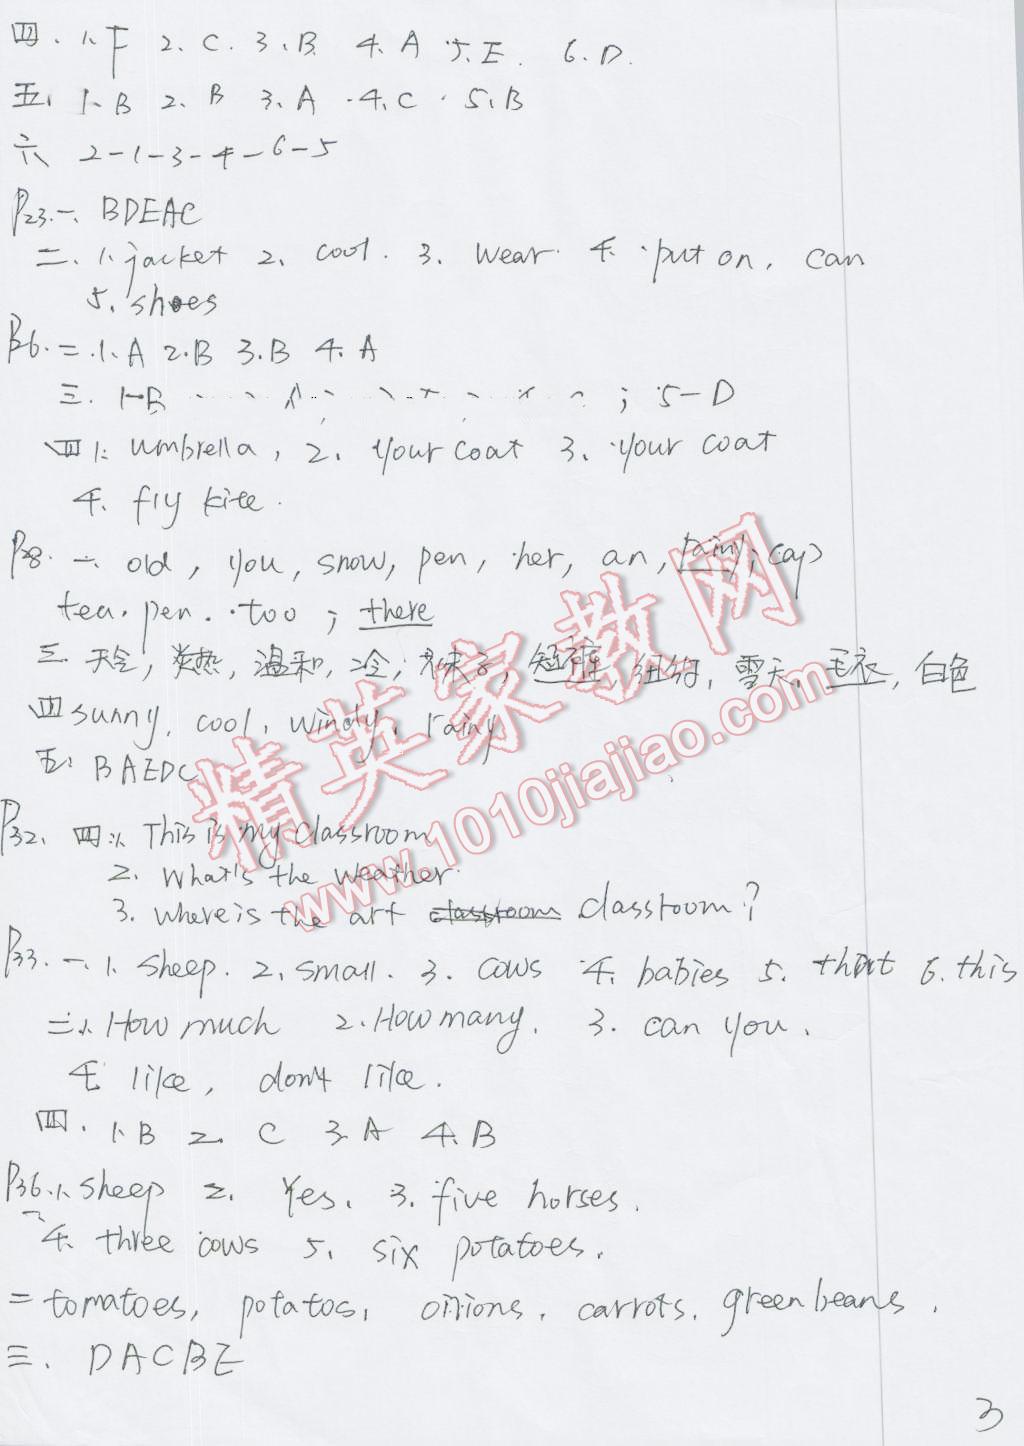 四、1、F 2、C. 3、B 4、A 5、E. 6、D.
五、1、B 2、B 3、A 4、C 5、B
六、2-1-3-4-6-5
P23.一、BDEAC
二、1、jacket 2、cool. 3、wear 4、put on, can
5、shoes
P26.二.1、A 2.B 3.B 4、A
三.1-B ; 5-D
四1、umbrella, 2、your coat 3、your coat
4、fly kite.
P28.一、old, you, snow, pen, her, an, rainy, cap
tea. pen. too; there
三、天气, 炎热, 温和, 冷; 短裤, 雪天, 毛衣, 白色
四sunny, cool, windy, rainy
五、BAEDC
P32、四、1、This is my classroom
2、What's the weather
3、where is the art classroom classroom?
P33.一、1、sheep. 2、small. 3. cows 4、babies 5、that 6.this
二、1、How much 2、How many. 3. can you.
4、like, don't like.
四、1、B 2、C 3、A 4、B
P36.一、1、sheep 2、Yes. 3、five horses.
4、three cows 5、six potatoes.
二tomatoes, potatos, onions, carrots, green beans.
三、DACBE
精英家教网
www.1010jiajiao.com
3